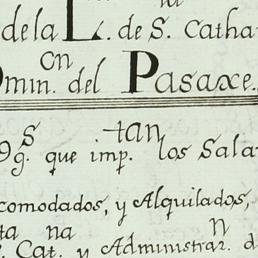 de la L. de S. Catha
on
min. del Pasaxe.
s tan
9g. que imp. los Sala
comodados, y Alquilados,
ta na n
. Cat. y Administrar. d